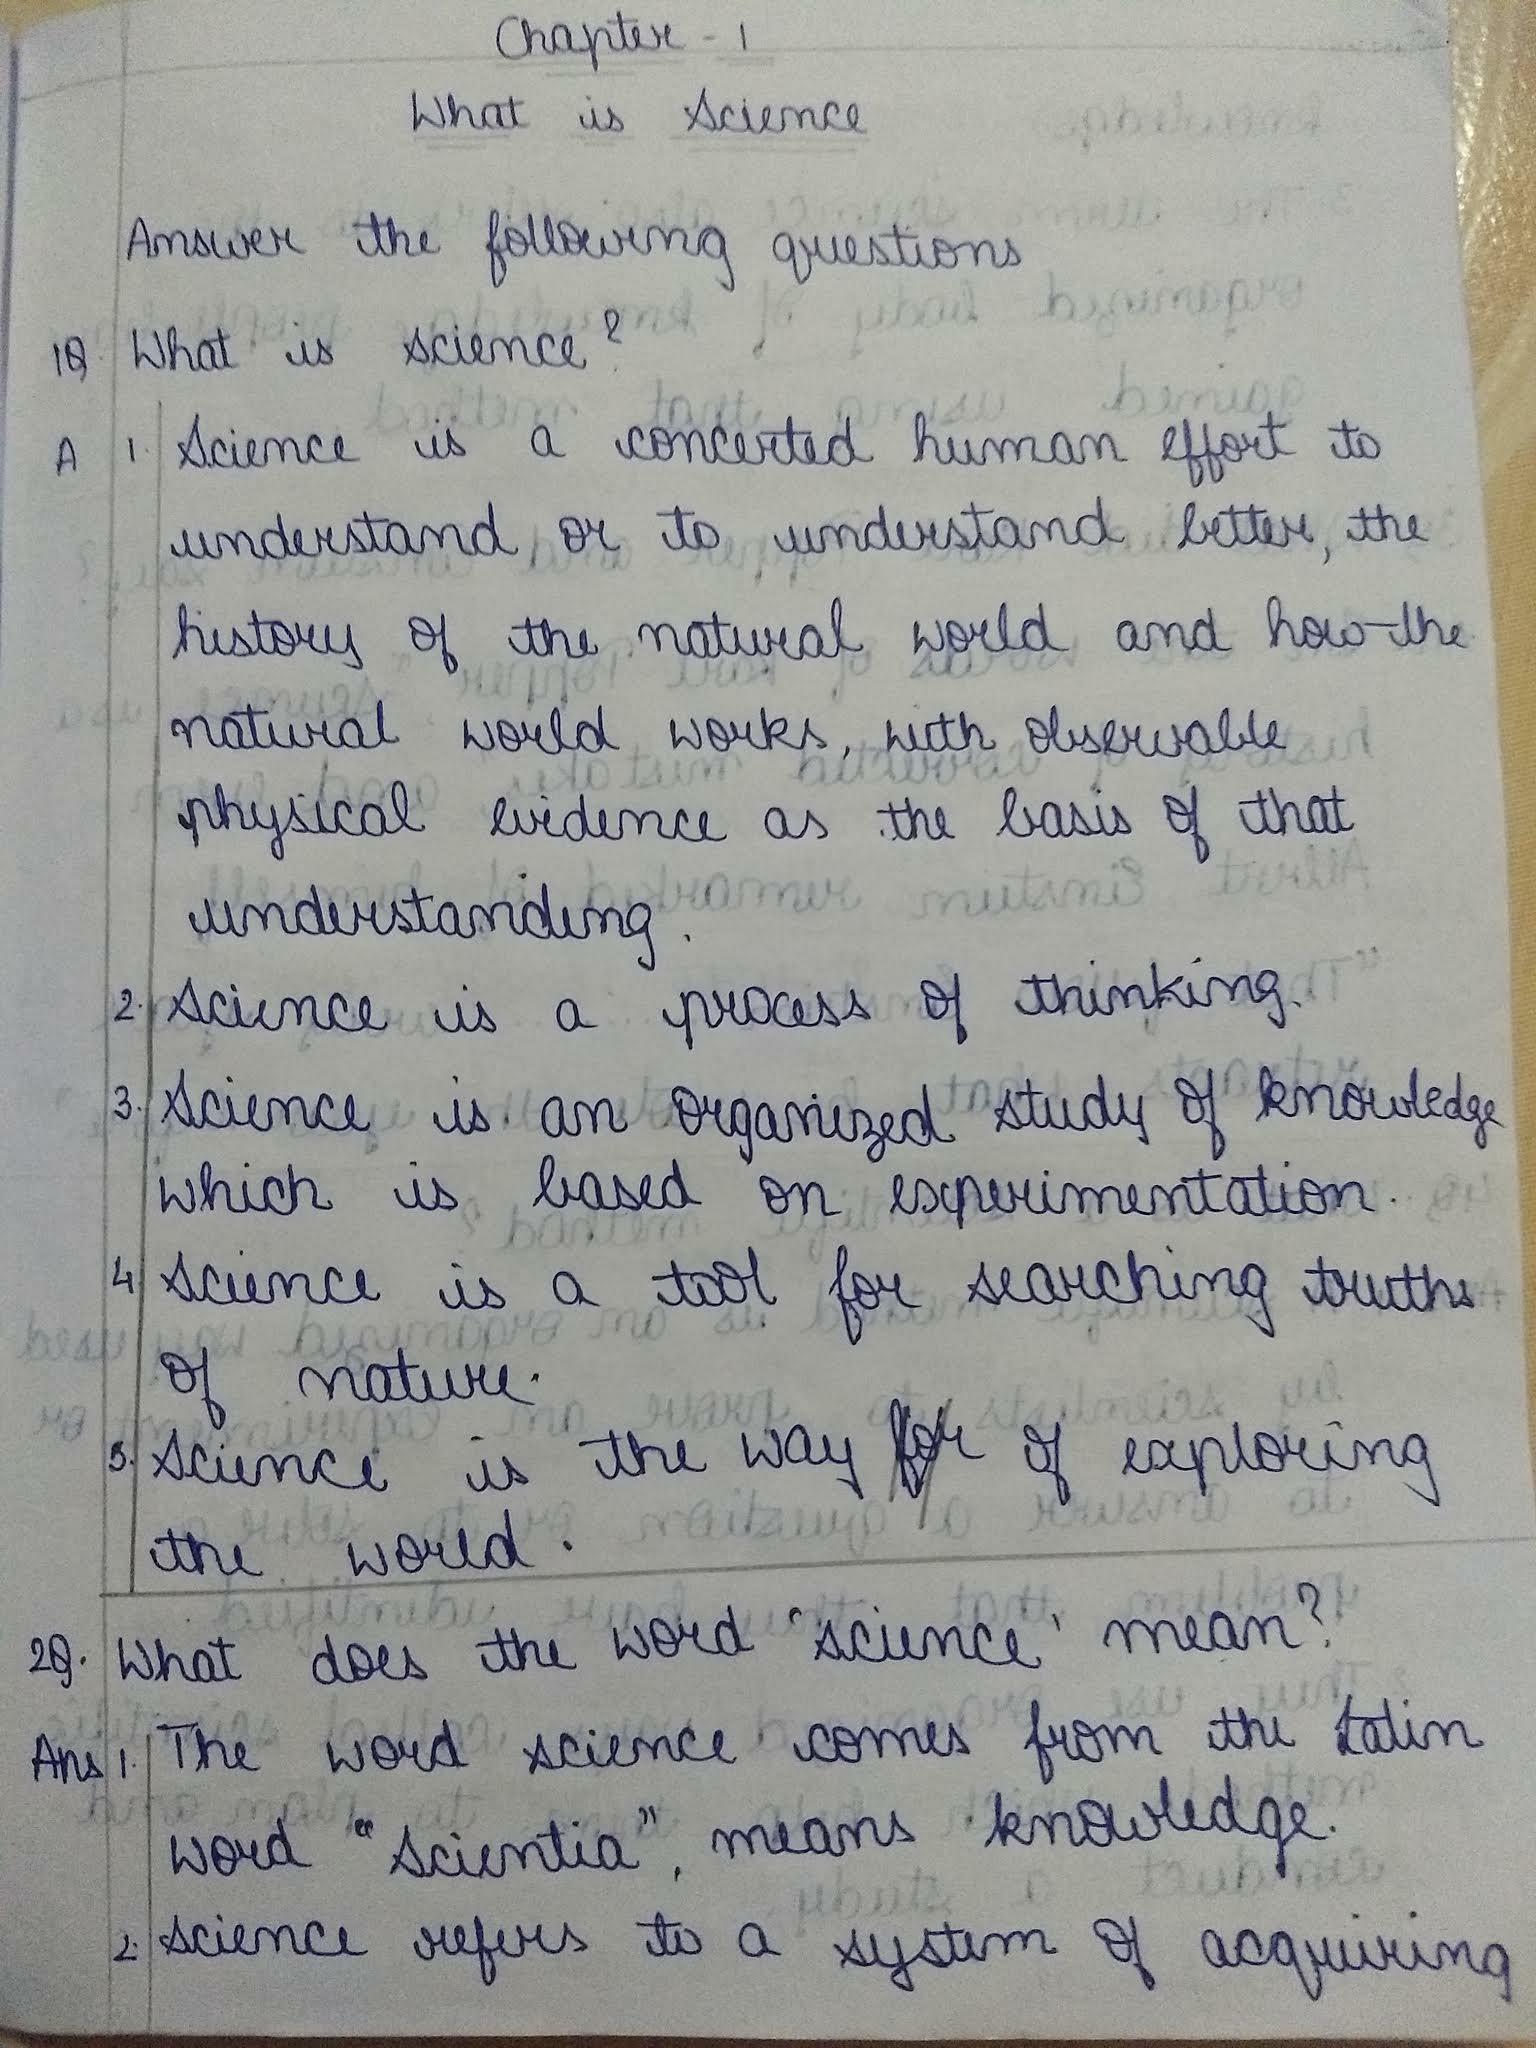 Chapter - 1
What is Science
Answer the following questions
1Q. What is science?
A 1. Science is a concerted human effort to
understand, or to understand better, the
history of the natural world and how the
natural world works, with observable
physical evidence as the basis of that
understanding.
2. Science is a process of thinking.
3. Science is an organized study of knowledge
which is based on experimentation.
4. Science is a tool for searching truths
of nature.
5. Science is the way for of exploring
the world.
2Q. What does the word 'science' mean?
Ans 1. The word science comes from the Latin
word "Scientia", means knowledge.
2. Science refers to a system of acquiring